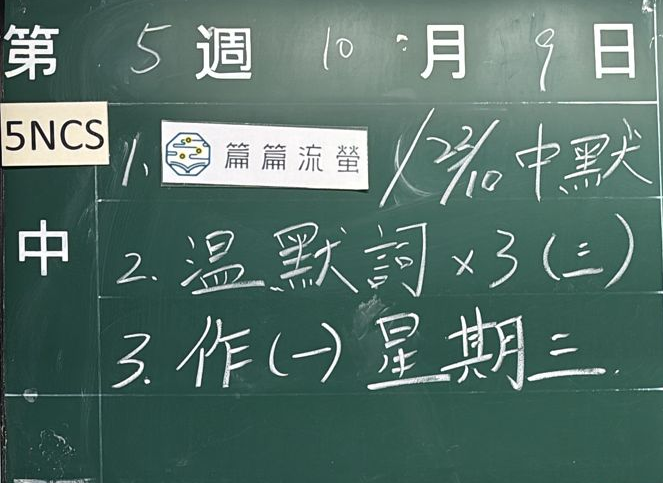 第 5 週 10 月 9 日
5NCS
中
1. 篇篇流螢 / 22/10 中默
2. 温默詞 x3 (三)
3. 作(一) 星期三.